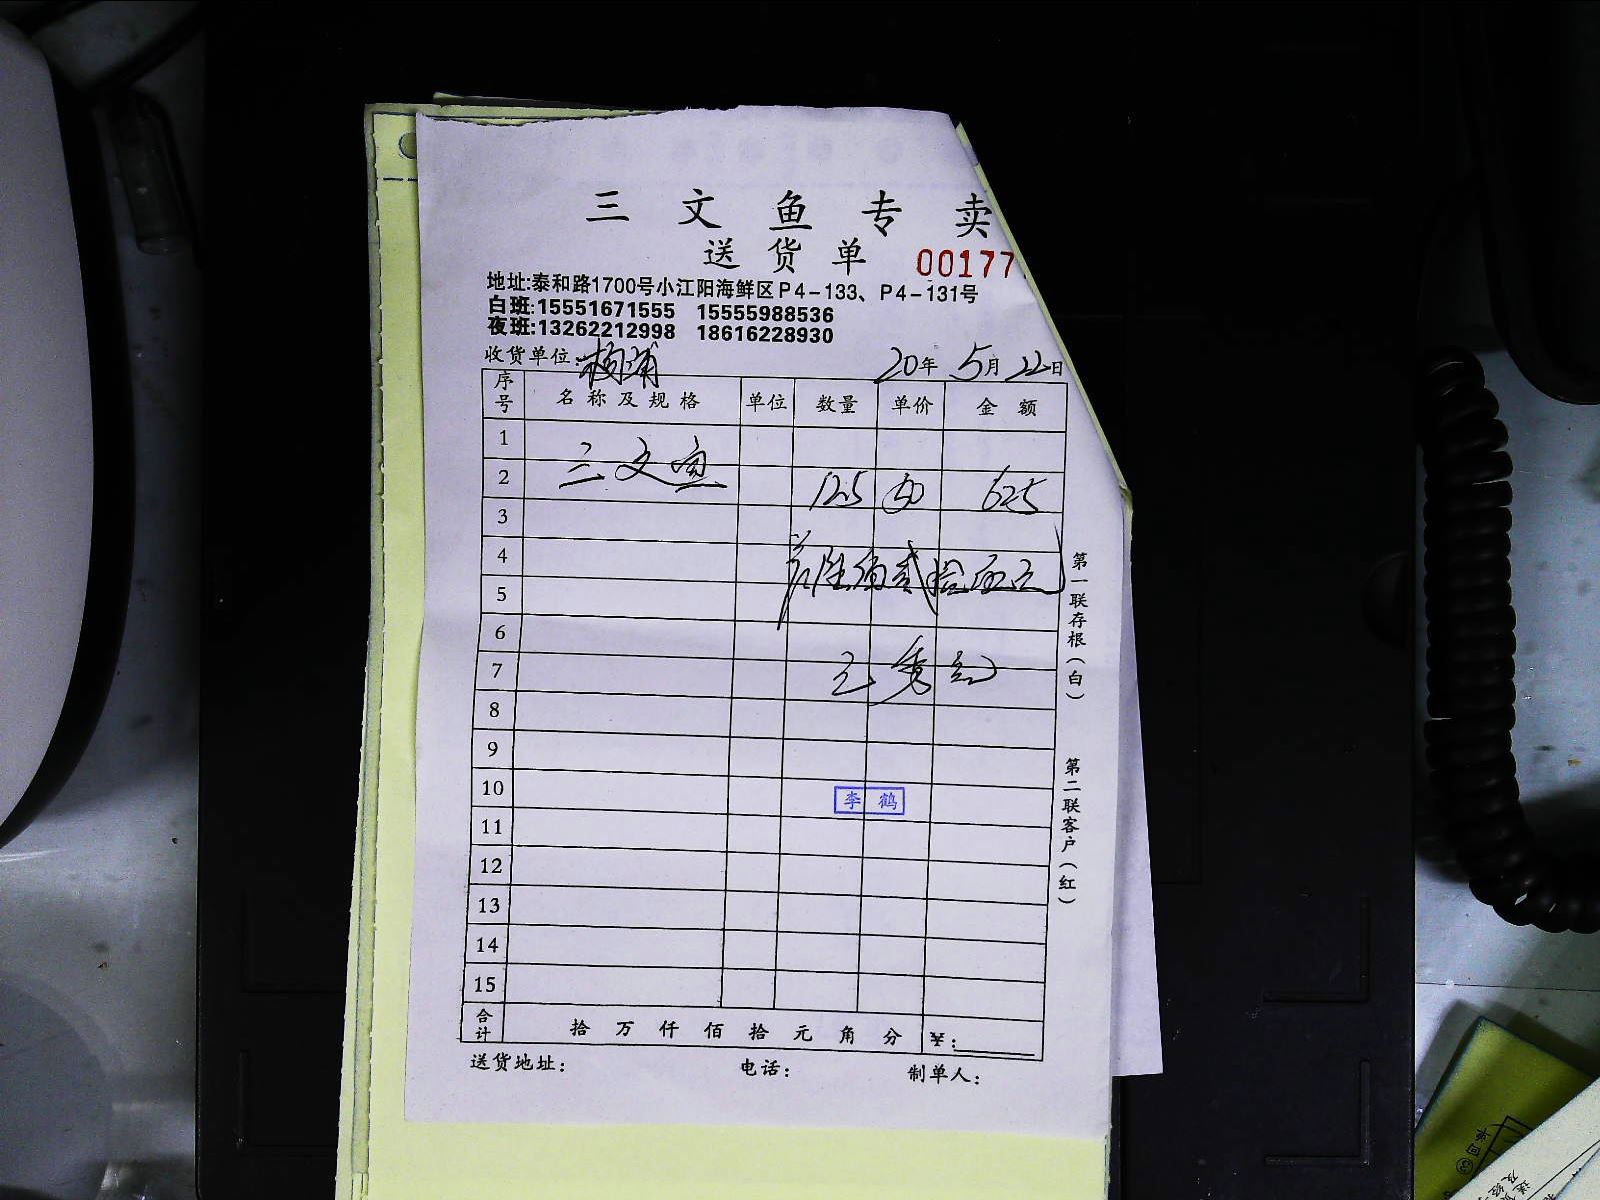 三文鱼专卖
送货单 00177
地址:泰和路1700号小江阳海鲜区P4-133、P4-131号
白班:15551671555 15555988536
夜班:13262212998 18616228930
收货单位:杨浦 20年5月22日
序号 名称及规格 单位 数量 单价 金额
1
2 三文鱼 12.5 50 625
3
4
5
6
7
8
9
10
李鹤
11
12
13
14
15
合计 拾万仟佰拾元角分 ¥:
送货地址: 电话: 制单人:
第一联存根(白)
第二联客户(红)